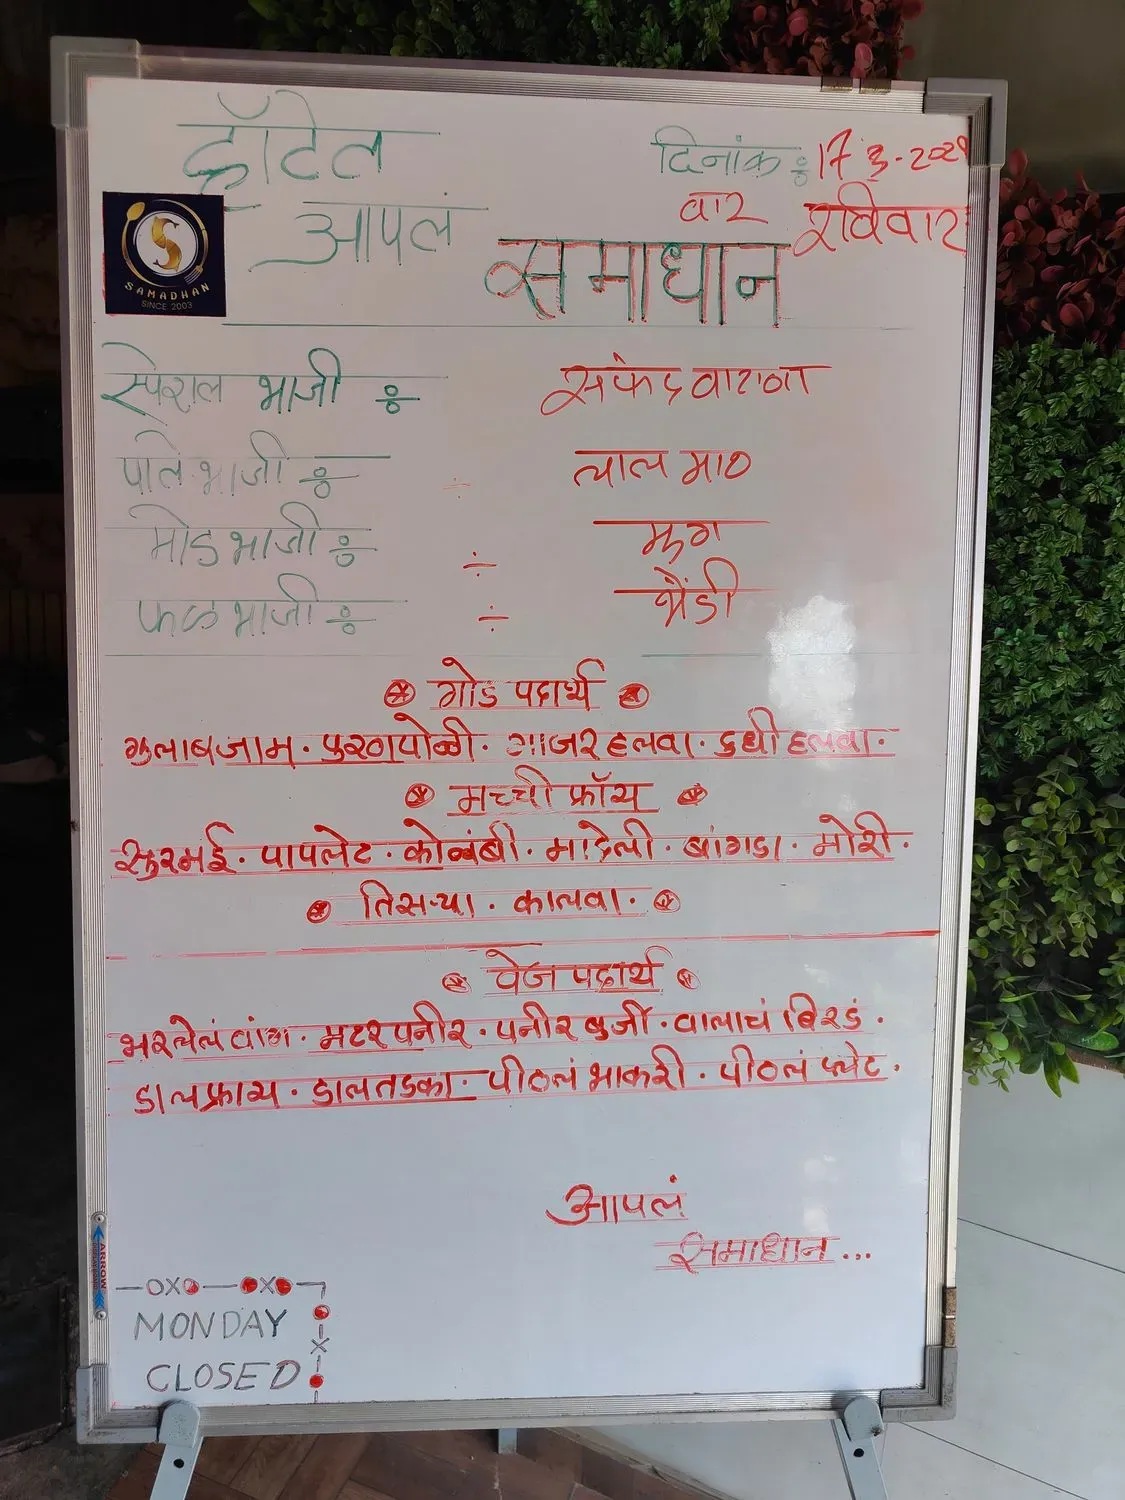 हॉटेल
दिनांक : 17 3-2024
वार रविवार
आपलं
समाधान
SAMADHAN
SINCE 2003
स्पेशल भाजी : सफेद वाटाणा
पाले भाजी : लाल माठ
मोड भाजी : मुग
फळ भाजी : भेंडी
गोड पदार्थ
गुलाबजाम · पुरणपोळी · गाजर हलवा · दुधी हलवा ·
मच्छी फ्रॉय
सुरमई · पापलेट · कोळंबी · मांदेली · बांगडा · मोरी ·
तिसऱ्या · कालवा ·
वेज पदार्थ
भरलेलं वांग · मटर पनीर · पनीर बुर्जी · वालाचं बिरडं ·
डाल फ्राय · डाल तडका · पीठलं भाकरी · पीठलं प्लेट ·
आपलं
समाधान...
ARROW
MONDAY
CLOSED